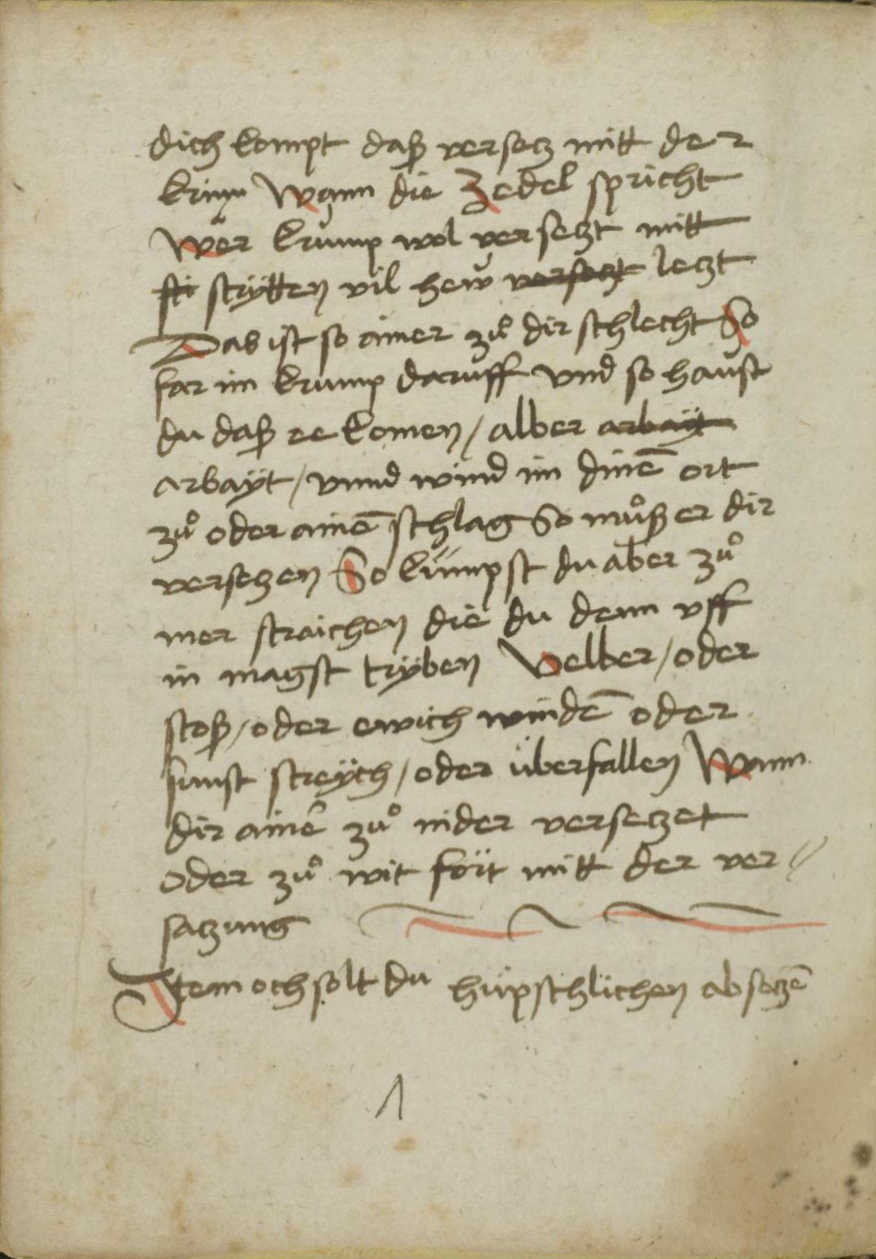 dich kompt daß versetz mitt der
krim Wann die Zedel spricht
Wer krump wol versetzt mitt
sti strÿtten vil hew versetzt letzt
Das ist so ainer zů dir schlecht So
far im krump daruff vnd so haust
du daß re komen / alber arbaÿt
arbaÿt / vnnd wind im dinē ort
zů oder ainē schlag So můß er dir
versetzen So kümpst du aber zů
mer straichen die du denn vff
in magst trÿben Velber / oder
stoß / oder ewich windē oder
sunst streÿch / oder überfallen Wann
dir ainē zů nider versetzet
oder zů wit fört mitt der ver //
satzung
Item och solt du hüpschlichen absetzē
1